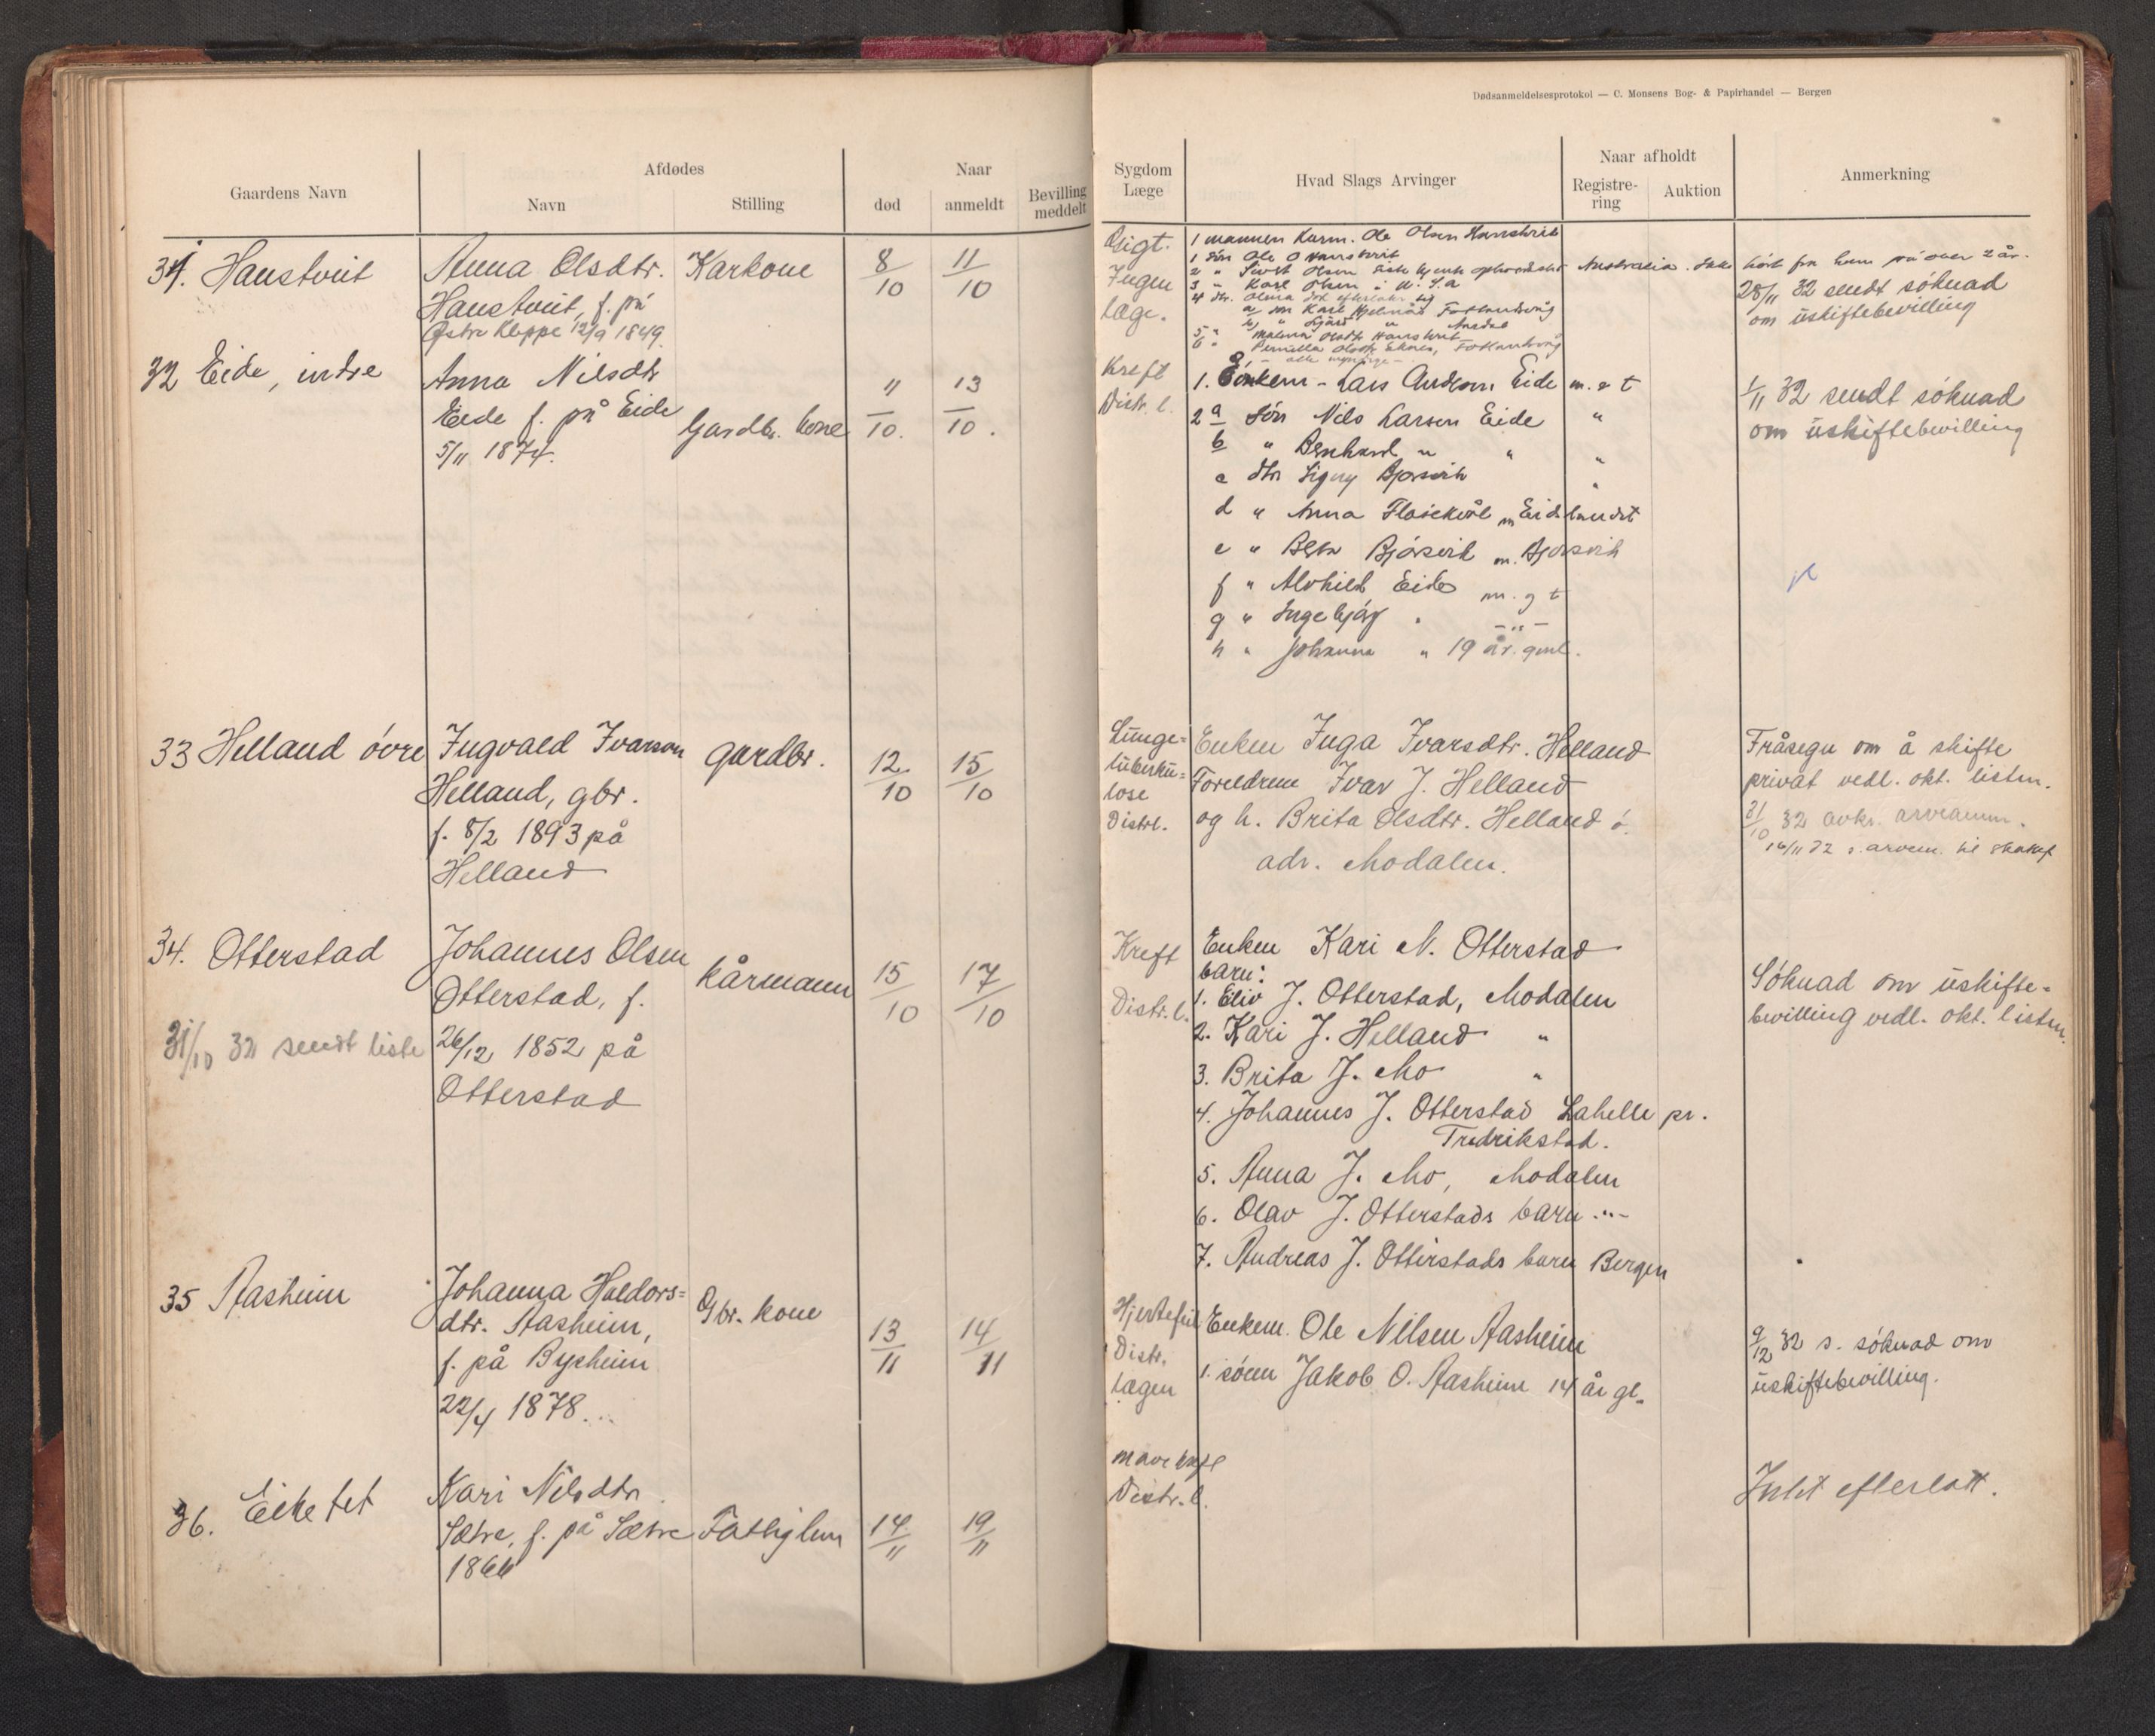 Dødsanmeldelsesprotokol — C. Monsens Bog- & Papirhandel — Bergen
Gaardens Navn
Afdødes
Navn
Stilling
Naar
død
anmeldt
Bevilling
meddelt
Sygdom
Læge
Hvad Slags Arvinger
Naar afholdt
Registre-
ring
Auktion
Anmerkning
31. Haustveit
Anna Olsdtr.
Haustveit, f. på
Østre Kleppe 12/9 1849.
Karkone
8/10
11/10
Gigt.
Ingen
læge.
1 mannen karm. Ole Olsen Haustveit
1 søn Ole O
3 " Karl Olsen i U.S.a
Australia
hørt fra ham på over 2 år.
28/11 32 sendt söknad
om uskiftebevilling
32 Eide, indre
Anna Nilsdtr
Eide f. på Eide
5/11 1874.
Gardbr. kone
11/10.
13/10.
Kreft
Distr. l.
1. Enkem - Lars Anderson Eide m. s t
2 a Søn Nils Larsen Eide "
b " Bernhard " " "
c dtr Signy Bjørsvik "
d " Anna m Eidslandet
e " Bjørsvik m. Bjørsvik
f " Alvhild Eide m. g t
g " Ingebjørg " - " -
h " Johanna " 19 år. gml.
1/11 32 sendt söknad
om uskiftebevilling
33 Helland övre
Ingvald Ivarson
Helland, gbr.
f. 8/2 1893 på
Helland
gardbr.
12/10
15/10
Lunge=
tuberku=
lose
Distrl.
Enken Inga Ivarsdtr. Helland
Foreldrene Ivar J. Helland
og h. Brita Olsdtr. Helland ö.
adr. Modalen.
Fråsegn om å skifte
privat vedl. okt. listen.
31/10 32
16/11 32
34. Otterstad
31/10 32 sendt liste
Johannes Olsen
Otterstad, f.
26/12 1852 på
Otterstad
kårmann
15/10
17/10
Kreft
Distr. l.
Enken Kari N. Otterstad
barn:
1. Eliv J. Otterstad, Modalen
2. Kari J. Helland "
3. Brita J. Mo "
4. Johannes J. Otterstad Lahelle pr.
Fredrikstad.
5. Anna J. Mo, Modalen
6. Olav J. Otterstads barn -"-
7. Andreas J. Otterstads barn Bergen
Söknad om uskifte=
bevilling vedl. okt. listen.
35 Aasheim
Johanna Haldors=
dtr. Aasheim,
f. på Bysheim
22/4 1878.
Gbr. kone
13/11
14/11
Hjertefeil
Distr.
lægen
Enkem. Ole Nilsen Aasheim
1. sönn Jakob O. Aasheim 14 år gl.
9/12 32 s. söknad om
uskiftebevilling.
36. Eiketet
Kari Nilsdtr.
Sætre, f. på Sætre
1866
Fattiglem
14/11
19/11
mavekreft
Distr. l.
Intet efterlatt.